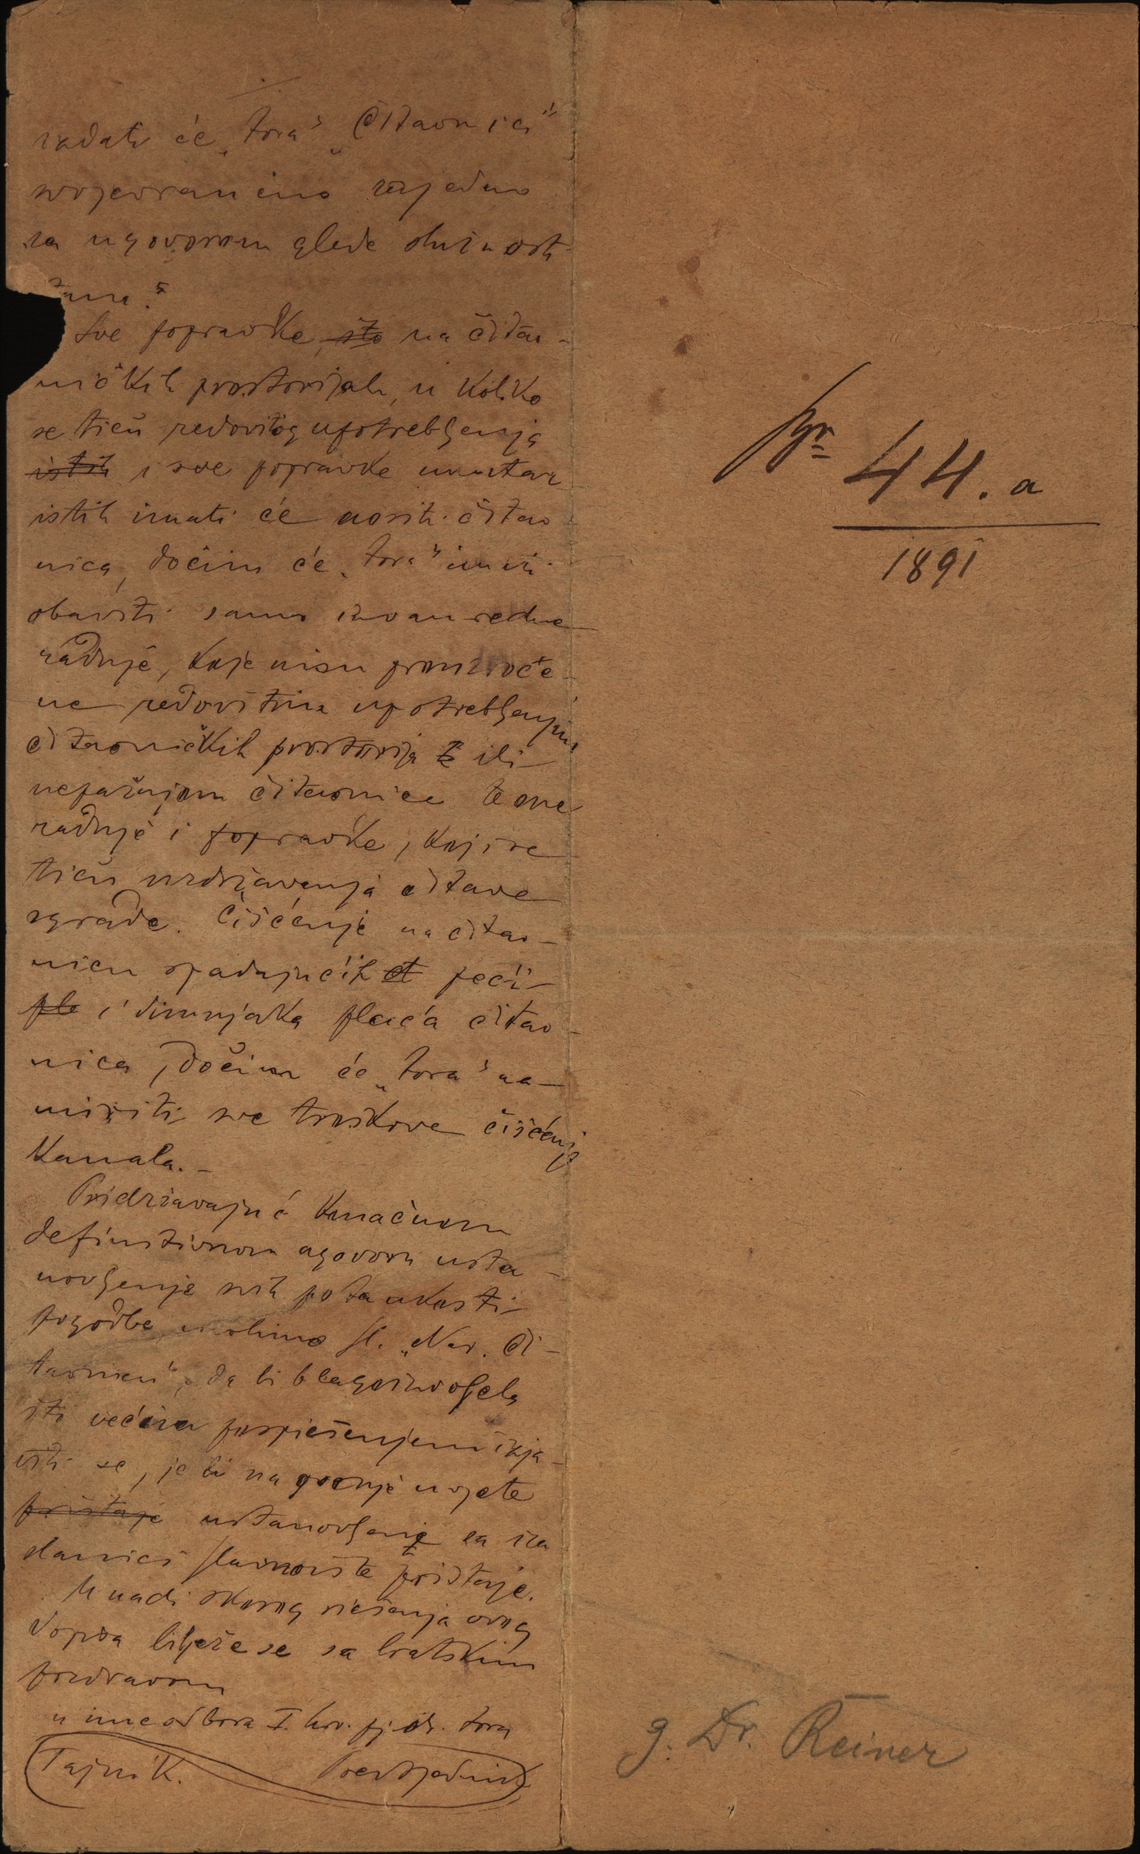 izdati će „tora" „Čitaonici"
svojevremeno zajedno
sa ugovorom glede
Sve popravke što na čitao-
ničkih prostorijah, u koliko
se tiču redovitog upotrebljenja
istih i sve popravke unutar
istih imati će nositi čitao
nica, dočim će „tora" imati
obaviti samo izvanredne
radnje, koje nisu prouzroče-
ne redovitim upotrebljenjem
čitaoničkih prostorija ili
nepažnjom čitaonice te one
radnje i popravke, koji se
tiču uzdržavanja čitave
zgrade. Čišćenje na čitao-
nicu spadajućih peći
i dimnjaka plaća čitao-
nica, dočim će „tora" na-
miriti sve troškove čišćenja
kanala. -
Pridržavajuć konačnom
definitivnom ugovoru usta-
novljenje svih potankosti
pogodbe, umolimo sl. „Nar. Či-
taonicu", da bi blagoizvoljela
što većim pospiešenjem izja-
viti se, je li na gornje uvjete
pristaje ustanovljene sa iza
slanici slavnosti te pristaje.
U nadi skorog riešenja ovog
dopisa bilježe se sa bratskim
pozdravom
u ime odbora I. hrv. pj. dr. tora
Tajnik. Predsjednik
br 44. a
1891
g. Dr. Reiner